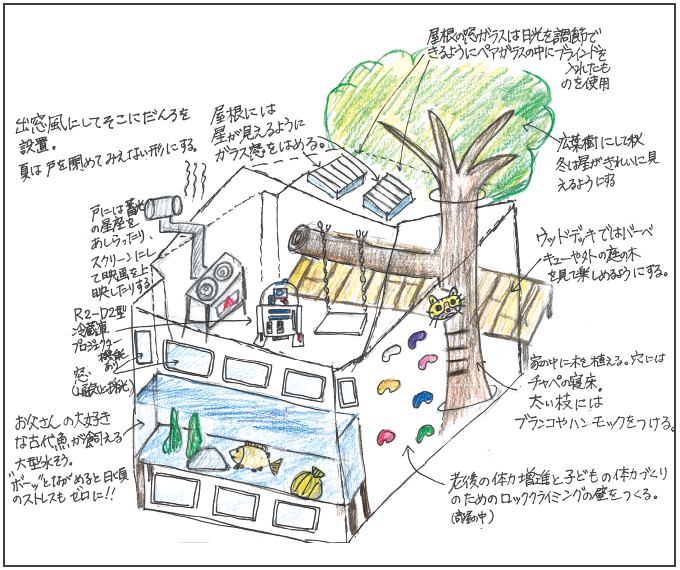 屋根の窓ガラスは日光を調節で
きるようにペアガラスの中にブラインドを
入れたも
のを使用
出窓風にしてそこにだんろを
設置。
夏は戸を閉めてみえない形にする。
屋根には
星が見えるように
ガラス窓をはめる。
広葉樹にして秋
冬は星がきれいに見
えるようにする
戸には蓄光
の星座を
あしらったり、
スクリーンにし
て映画を上
映したりする
ウッドデッキではバーベ
キューや外の庭の木
を見て楽しめるようにする。
R2-D2型
冷蔵庫
プロジェクター
機能
あり
窓
(通気と採光)
家の中に木を植える。穴には
チャペの寝床。
太い枝には
ブランコやハンモックをつける。
お父さんの大好き
な古代魚が飼える
大型水そう。
"ボーッ"とながめると日頃
のストレスもゼロに!!
老後の体力増進と子どもの体力づくり
のためのロッククライミングの壁をつくる。
(部屋の中)